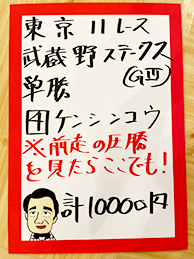 東京11レース
武蔵野ステークス
(GⅢ)
単勝
团ケンシンコウ
※前走の圧勝
を見たらここでも!
計10000円